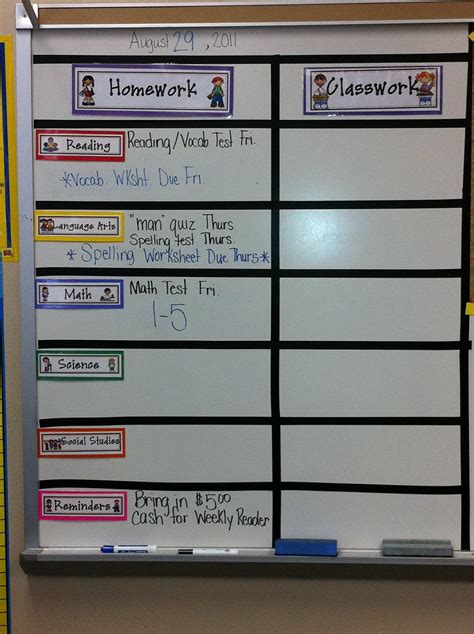 August 29, 2011
Homework
Classwork
Reading
Reading/Vocab. Test Fri.
*Vocab. Wksht Due Fri.
Language Arts
"man" quiz Thurs.
Spelling Test Thurs.
*Spelling Worksheet Due Thurs*
Math
Math Test Fri.
1-5
Science
Social Studies
Reminders
Bring in $5.00
cash for Weekly Reader